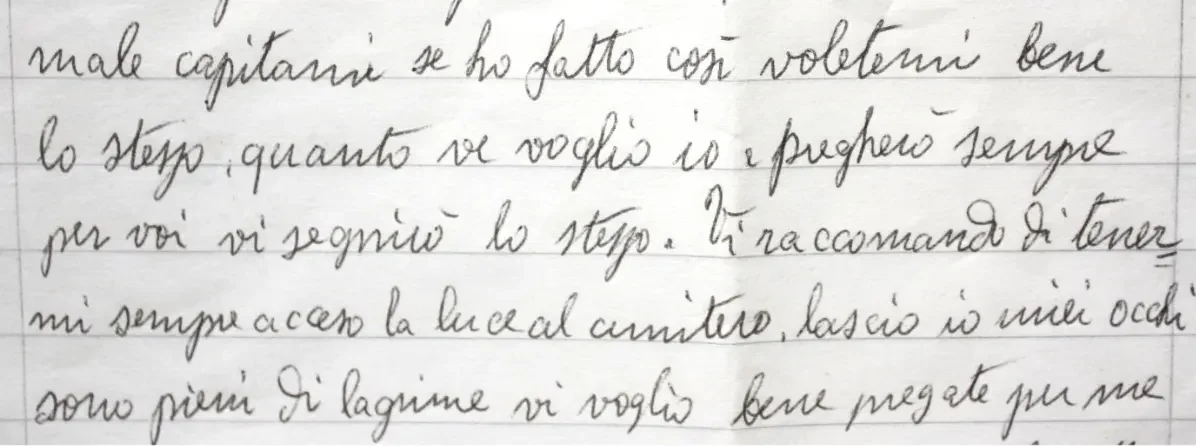 male capitemi se ho fatto così voletemi bene
lo stesso, quanto ve voglio io e pregherò sempre
per voi vi seguirò lo stesso. Vi raccomando di tener=
mi sempre acceso la luce al cimitero, lascio io miei occhi
sono pieni di lagrime vi voglio bene pregate per me